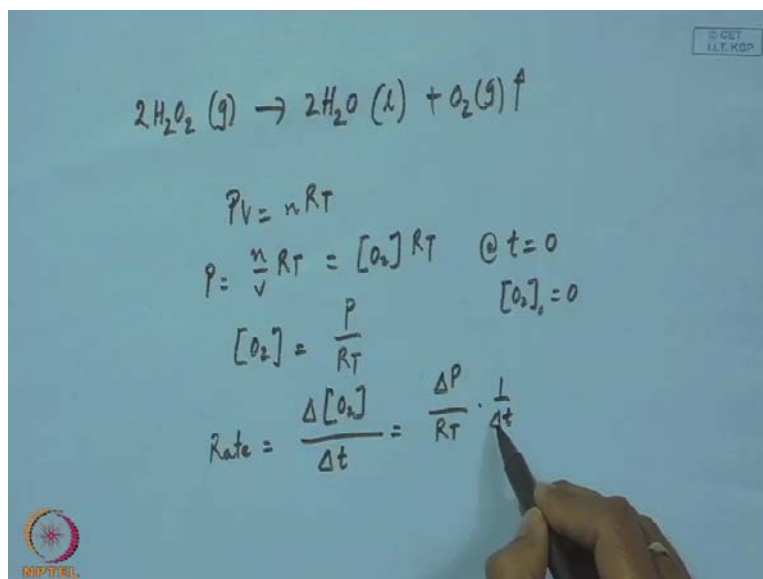 © CET
I.I.T. KGP
2H₂O₂ (g) → 2H₂O (l) + O₂(g)↑
PV = nRT
P = n/V RT = [O₂] RT @ t = 0
[O₂]₀ = 0
[O₂] = P/RT
Rate = Δ[O₂]/Δt = ΔP/RT · 1/Δt
NPTEL